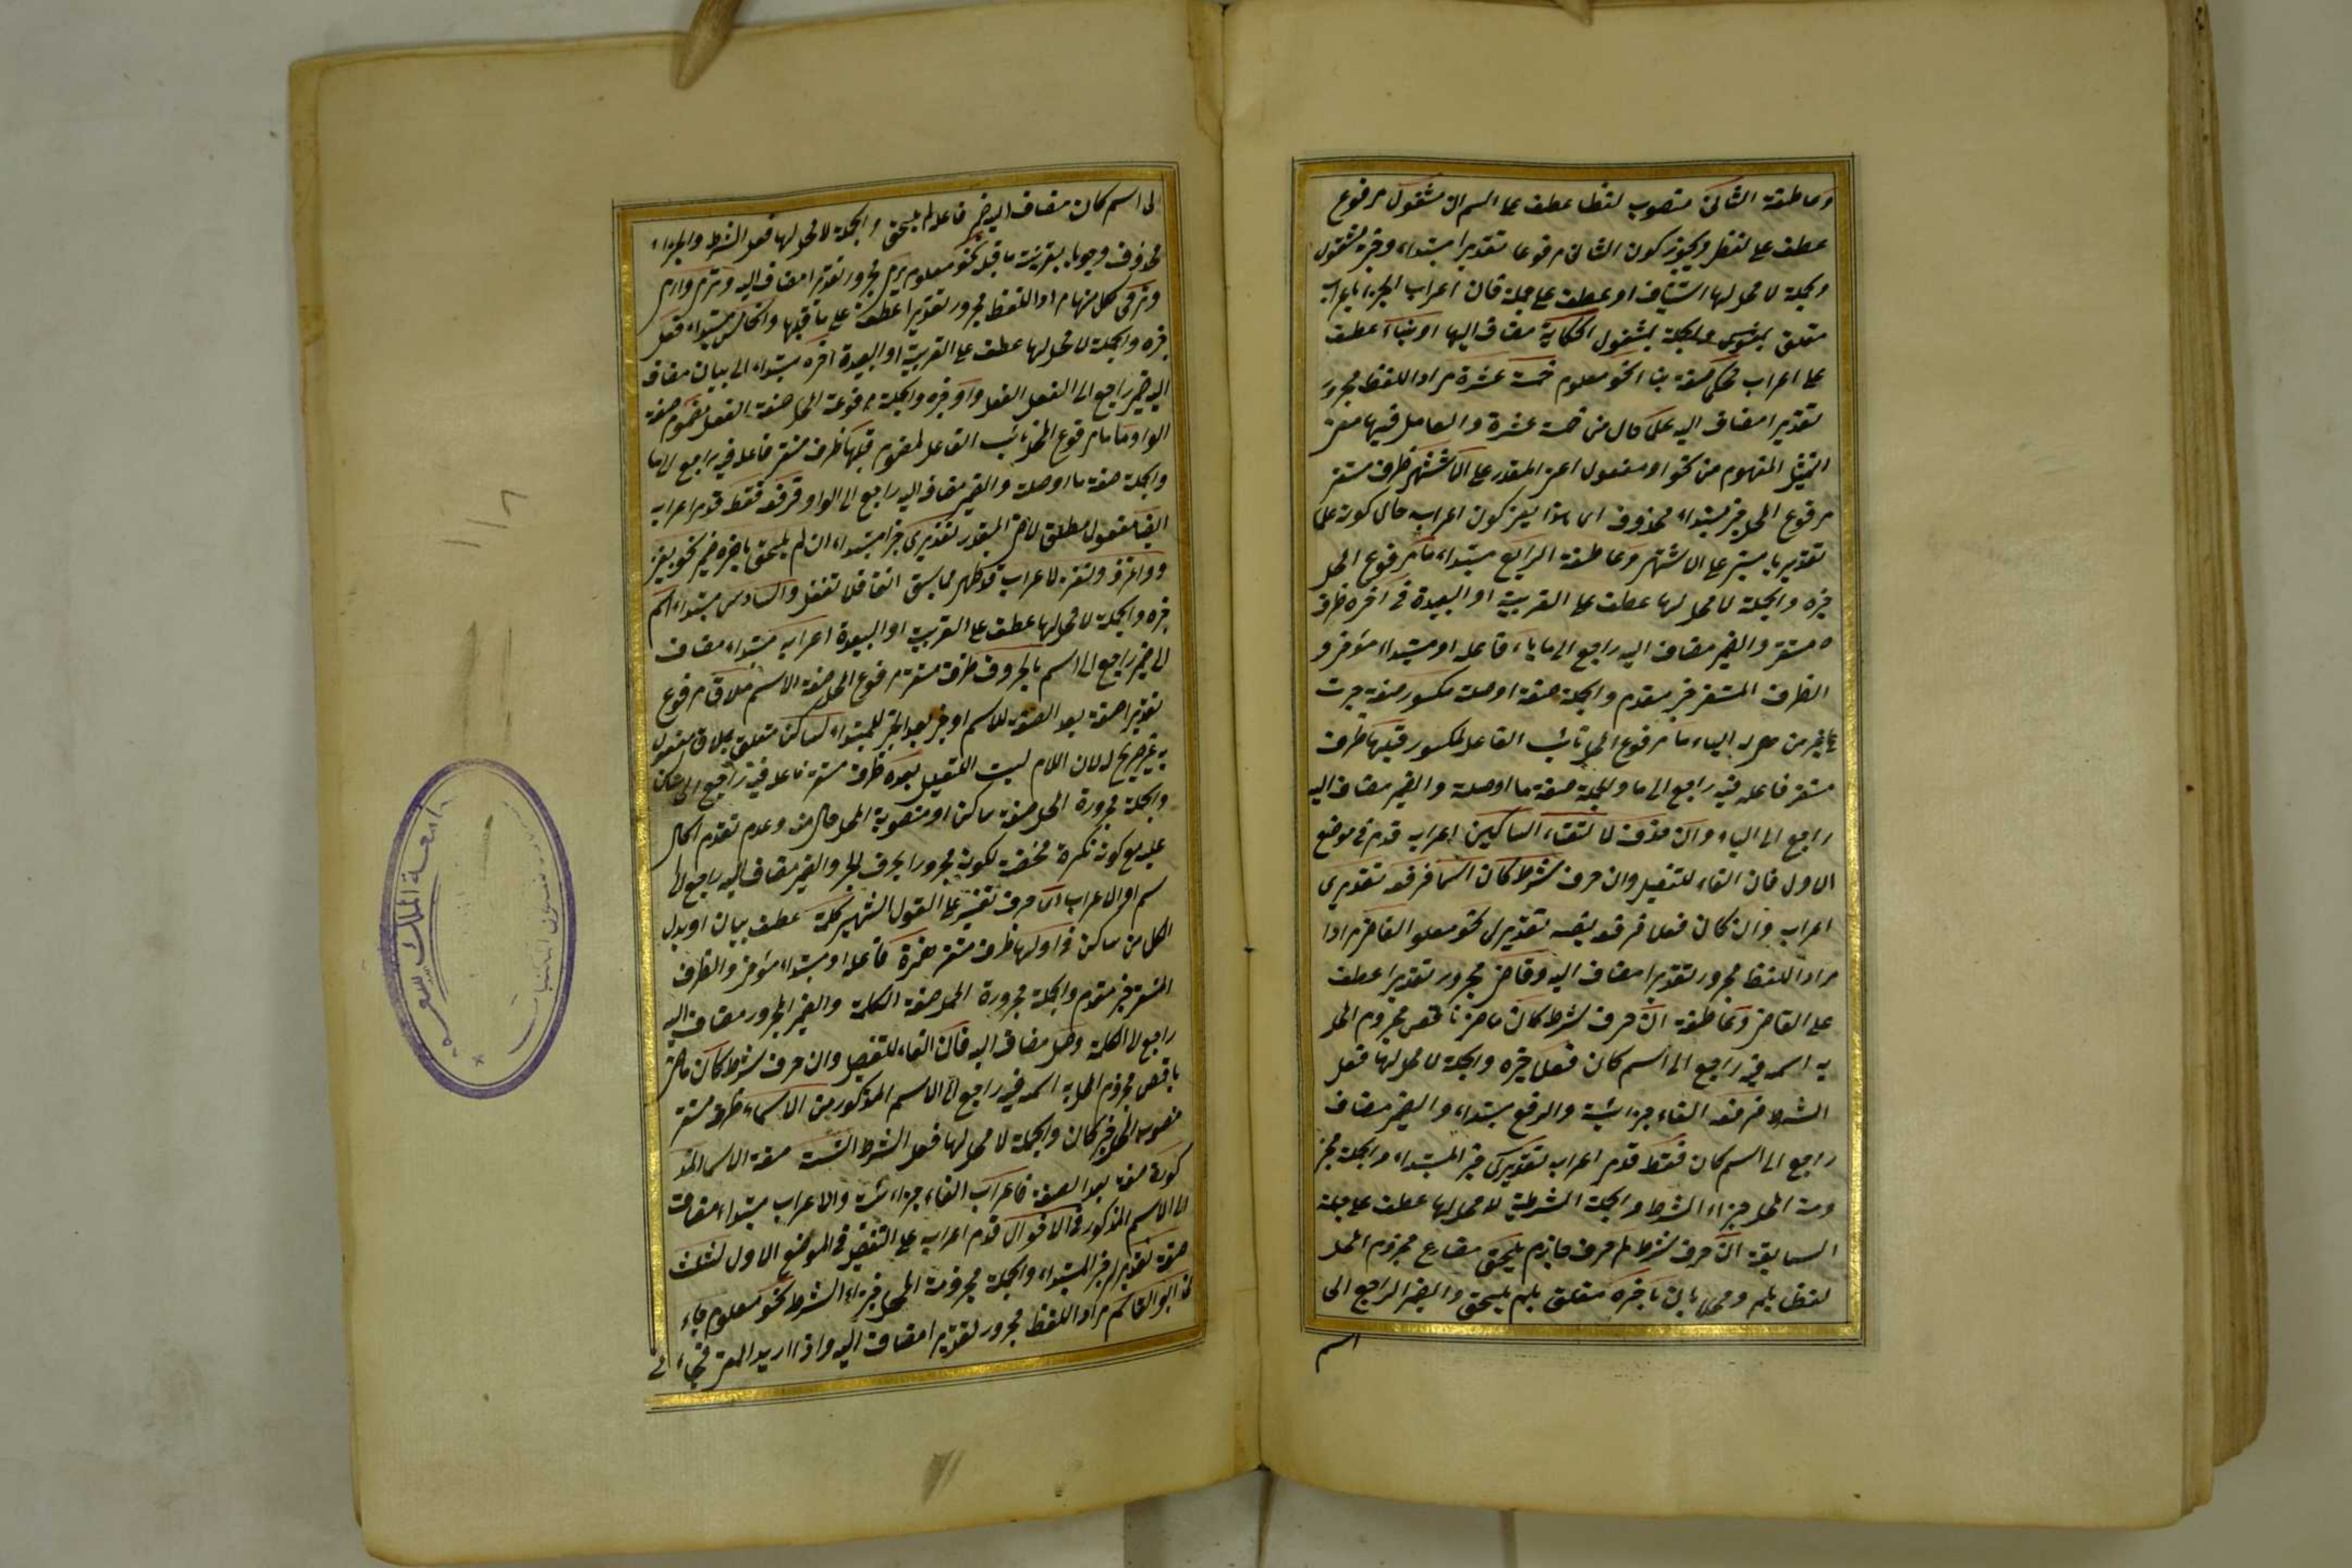 وعاطفة الثاني منصوب لفظا عطف على اسم ان مشغول مرفوع
عطف على لفظ ويجوز كون الثاني مرفوعا تقديرا مبتداء وخبره مشغول
وجملة لا محل لها استيناف او عطف على جملة فان اعراب الجزء باعراب
متعلق والجملة بمشغول الحكاية مضاف اليها او بناء عطف
على اعراب محكي صفة بناء نحو معلوم خمسة عشرة مراد اللفظ مجرور
تقديرا مضاف اليه على حال من خمسة عشرة والعامل فيها معنى
التمثيل المفهوم من نحو او مفعول اعنى المقدر على الاشهر ظرف مستقر
مرفوع المحل خبر مبتداء محذوف اى هذا يعنى كون اعرابه حال كونه علما
تقديريا مبنى على الاشهر وعاطفة الرابع مبتداء ما مرفوع المحل
خبره والجملة لا محل لها عطف على القريبة او البعيدة في آخره ظرف
مستقر والضمير مضاف اليه راجع الى ما ياء فاعله او مبتداء مؤخر و
الظرف المستقر خبر مقدم والجملة صفة او صلة مكسور صفة جرت
على غير من هى له الياء ما مرفوع المحل نائب الفاعل لمكسور قبلها ظرف
مستقر فاعله فيه راجع الى ما والجملة صفة ما او صلة والضمير مضاف اليه
راجع الى الياء وان حذف لالتقاء الساكنين اعرابه قدم في موضع
الاول فان الفاء للتفصيل وان حرف شرط كان اسما فرفعه تقديرى
اعراب وان كان فعلا فرفعه تقديرى نحو معلوم القاضى مرادا
مراد اللفظ مجرور تقديرا مضاف اليه وقاض مجرور تقديرا عطف
على القاضى وعاطفة ان حرف شرط كان ماض ناقص مجزوم المحل
به اسمه فيه راجع الى اسم كان فعلا خبره والجملة لا محل لها فعل
الشرط فرفعه الفاء جزائية والرفع مبتداء والضمير مضاف
راجع الى اسم كان فقط قدم اعرابه تقديرى خبر المبتداء والجملة مجز
ومة المحل جزاء الشرط والجملة الشرطية لا محل لها عطف على جملة
السابقة ان حرف شرط لم حرف جازم يلحق مضارع مجزوم المحل
لفظا بلم ومحلا بان باخره متعلق بلم يلحق والضمير الراجع الى
اسم
الى اسم كان مضاف اليه ضمير فاعله لم يلحق والجملة لا محل لها فعل الشرط والجزاء
محذوف وجوبا بقرينة ما قبله نحو معلوم يرمى مجرور تقديرا مضاف اليه وترمى وارمى
ونرمى كل منها مراد اللفظ مجرور تقديرا عطف على ما قبلها والخامس مبتداء فعل
خبره والجملة لا محل لها عطف على القريبة او البعيدة آخره مبتداء الى بيان مضاف
اليه ضمير راجع الى الفعل واو خبره والجملة مرفوعة المحل صفة الفعل مضموم صفة
الواو ما مرفوع المحل نائب الفاعل لمضموم قبلها ظرف مستقر فاعله فيه راجع الى ما
والجملة صفة ما او صلة والضمير مضاف اليه راجع الى الواو فرفعه فقط قدم اعرابه
ايضا مفعول مطلق لآض المقدر تقديرى خبر مبتداء ان لم يلحق باخره ضمير نحو يغز
و واغزو ونغزو الاعراب قد ظهر مما سبق انفا فلا تغفل والسادس مبتداء اسم
خبره والجملة لا محل لها عطف على القريبة او البعيدة اعرابه مبتداء مضاف
الى ضمير راجع الى اسم بالحروف ظرف مستقر مرفوع المحل صفة الاسم ملاق مرفوع
تقديرا صفة بعد الصفة للاسم او خبر بعد الخبر للمبتداء لساكن متعلق بملاق مفعول
به غير صريح له لان اللام ليست للتعليل بعده ظرف مستقر فاعله فيه راجع الى ساكن
والجملة مجرورة المحل صفة ساكن او منصوبة المحل حال منه وعدم تقدم الحال
عليه مع كونه نكرة محضة لكونه مجرورا بحرف الجر والضمير مضاف اليه راجع الى
سم او الاعراب اى حرف تفسير على القول الشهير كلمة عطف بيان او بدل
الكل من ساكن في اولها ظرف مستقر همزة فاعله او مبتداء مؤخر والظرف
المستقر خبر مقدم والجملة مجرورة المحل صفة الكلمة والضمير المجرور مضاف اليه
راجع الى الكلمة وصل مضاف اليه فان الفاء للتفصيل وان حرف شرط كان ماض
ناقص مجزوم المحل به اسمه فيه راجع الى الاسم المذكور من الاسماء ظرف مستقر
منصوب المحل خبر كان والجملة لا محل لها فعل الشرط الستة صفة الاسماء المذ
كورة صفة بعد الصفة فاعراب الفاء جزائية والاعراب مبتداء مضاف
الى الاسم المذكور في الاقوال قدم اعرابه على التفصيل في الموضع الاول لثلث
صفة تقديرى خبر المبتداء والجملة مجزومة المحل جزاء الشرط نحو معلوم جاء
نى ابو القاسم مراد اللفظ مجرور تقديرا مضاف اليه واذا اريد المعنى فجاء
جامعة الملك سعود